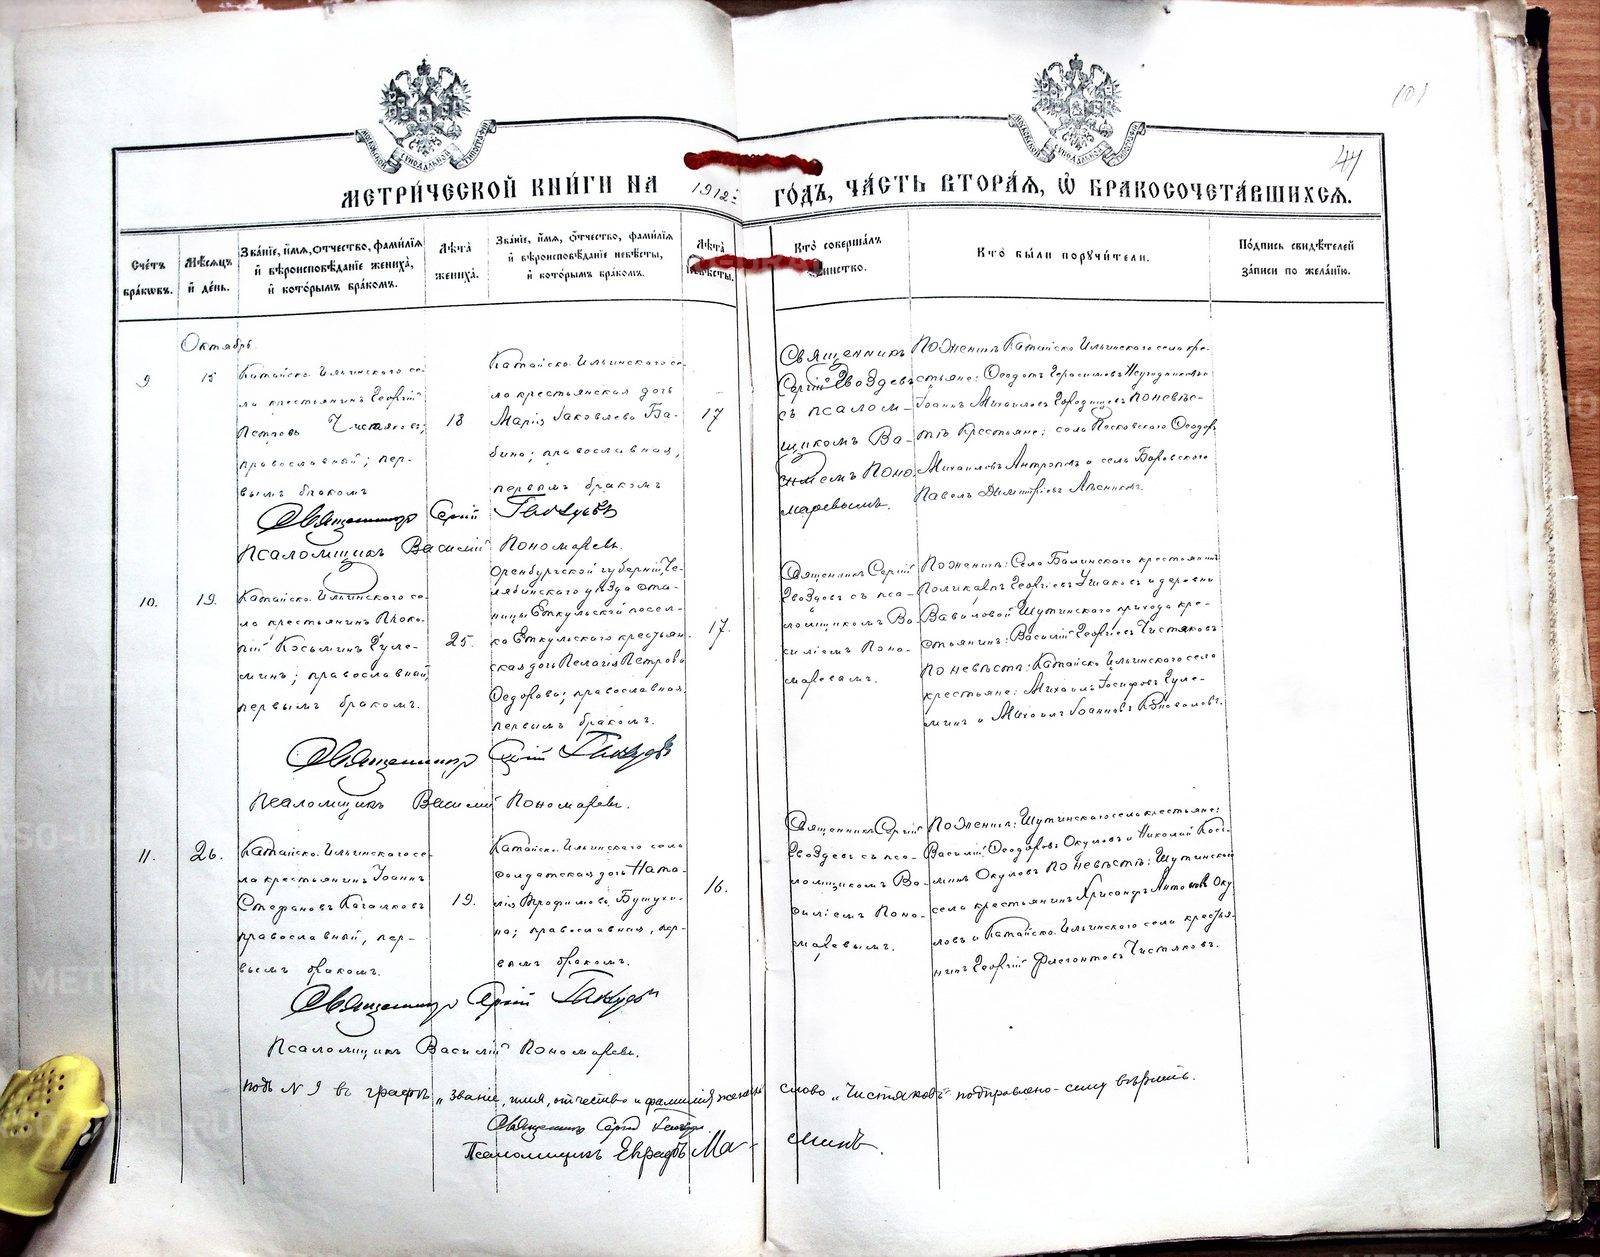 101
44
МЕТРИ́ЧЕСКОЙ КНИ́ГИ НА 1912 ГО́ДЪ, ЧА́СТЬ ВТОРА́Ѧ, Ѡ҆ БРАКОСОЧЕТА́ВШИХСѦ.
Сче́тъ бра́кѡвъ.
Мѣ́сѧцъ и҆ де́нь.
Зва́нїе, и҆́мѧ, ѻ҆́тчество, фами́лїѧ и҆ вѣроисповѣ́данїе жениха̀, и҆ кото́рымъ бра́комъ.
Лѣ́та жениха̀.
Зва́нїе, и҆́мѧ, ѻ҆́тчество, фами́лїѧ и҆ вѣроисповѣ́данїе невѣ́сты, и҆ кото́рымъ бра́комъ.
Лѣ́та невѣ́сты.
Кто̀ соверша́лъ таинство.
Кто̀ бы́ли порꙋчи́тели.
По́дпись свидѣ́телей за́писи по жела́нїю.
Октябрь
9
15
Катайско-Ильинского се-
ла крестьянинъ Георгій
Петровъ Чистяковъ;
православный; пер-
вымъ бракомъ
18
Катайско-Ильинского се-
ла крестьянская дочь
Марія Іаковлева Ба-
бина; православная,
первымъ бракомъ
17
Священникъ
Сергій Гвоздевъ
съ псалом-
щикомъ Ва-
силіемъ Поно-
маревымъ.
По женихѣ Катайско Ильинского села кре-
стьяне: Ѳеодотъ Герасимовъ
Іоаннъ Михаиловъ Городищевъ по невѣс-
тѣ крестьяне; села Песковского Ѳеодоръ
Михаиловъ Антроповъ и села Боровского
Павелъ Димитріевъ
Священникъ Сергій Гвоздевъ
Псаломщикъ Василій Пономаревъ.
10.
19.
Катайско-Ильинского се-
ла крестьянинъ Проко-
пій Косьминъ Гуле-
минъ; православный,
первымъ бракомъ.
25.
Оренбургской губерніи, Че-
лябинского уѣзда ста-
ницы Еткульской посел-
ка Еткульского крестьян-
ская дочь Пелагія Петрова
Ѳедорова; православная,
первымъ бракомъ.
17.
Священникъ Сергій
Гвоздевъ съ пса-
ломщикомъ Ва-
силіемъ Поно-
маревымъ.
По женихѣ: Села крестьянинъ
Поликарпъ Георгіевъ Ушаковъ и деревни
Вавиловой Шутинского прихода кре-
стьянинъ: Василій Георгіевъ Чистяковъ
По невѣстѣ: Катайско Ильинского села
крестьяне: Михаилъ Іосифовъ Гуле-
минъ и Михаилъ Іоанновъ Коноваловъ.
Священникъ Сергій Гвоздевъ
Псаломщикъ Василій Пономаревъ.
11.
26.
Катайско-Ильинского се-
ла крестьянинъ Іоаннъ
Стефановъ
православный, пер-
вымъ бракомъ.
19.
Катайско-Ильинского села
солдатская дочь Ната-
лія Трофимова
на; православная, пер-
вымъ бракомъ.
16.
Священникъ Сергій
Гвоздевъ съ пса-
ломщикомъ Ва-
силіемъ Поно-
маревымъ.
По женихѣ: Шутинского села крестьяне:
Василій Ѳеодоровъ Окуловъ и Николай Кось-
минъ Окуловъ По невѣстѣ: Шутинского
села крестьянинъ Хрисанфъ Антоновъ Оку-
ловъ и Катайско-Ильинского села крестья-
нинъ Георгій Флегонтовъ Чистяковъ.
Священникъ Сергій Гвоздевъ
Псаломщикъ Василій Пономаревъ.
Подъ N 9 въ графѣ „Званіе, имя, отчество и фамилія жениха слово „Чистяковъ" подправлено - сему вѣрить.
Священникъ Сергій Гвоздевъ
Псаломщикъ